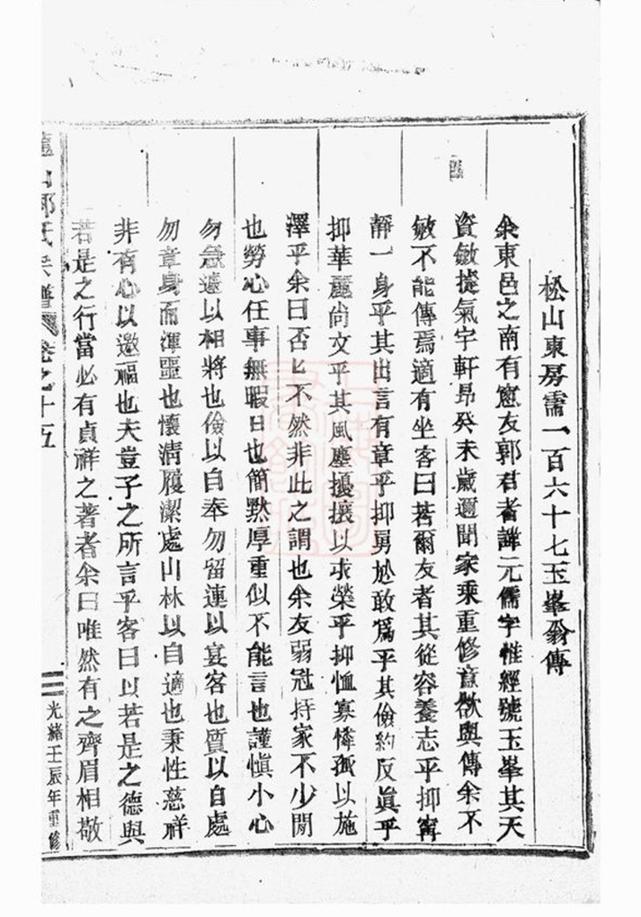 松山東房需一百六十七玉峯翁傳
余東邑之南有窓友郭君者諱元儒字惟經號玉峯其天
資敏捷氣宇軒昂癸未歲邇聞家乘重修意欲與傳余不
敏不能傳焉適有坐客曰若爾友者其從容養志乎抑寗
靜一身乎其出言有章乎抑勇於敢爲乎其儉約反眞乎
抑華麗尚文乎其風塵擾攘以求榮乎抑恤寡憐孤以施
澤乎余曰否匕不然非此之謂也余友弱冠持家不少閒
也勞心任事無暇日也簡默厚重似不能言也謹慎小心
勿怠遽以相將也儉以自奉勿留連以宴客也質以自處
勿章身而渾噩也懷清履潔處山林以自適也秉性慈祥
非有心以邀福也夫豈子之所言乎客曰以若是之德與
若是之行當必有貞祥之著者余曰唯然有之齊眉相敬
郭氏宗譜 卷之十五
三 光緒壬辰年重修